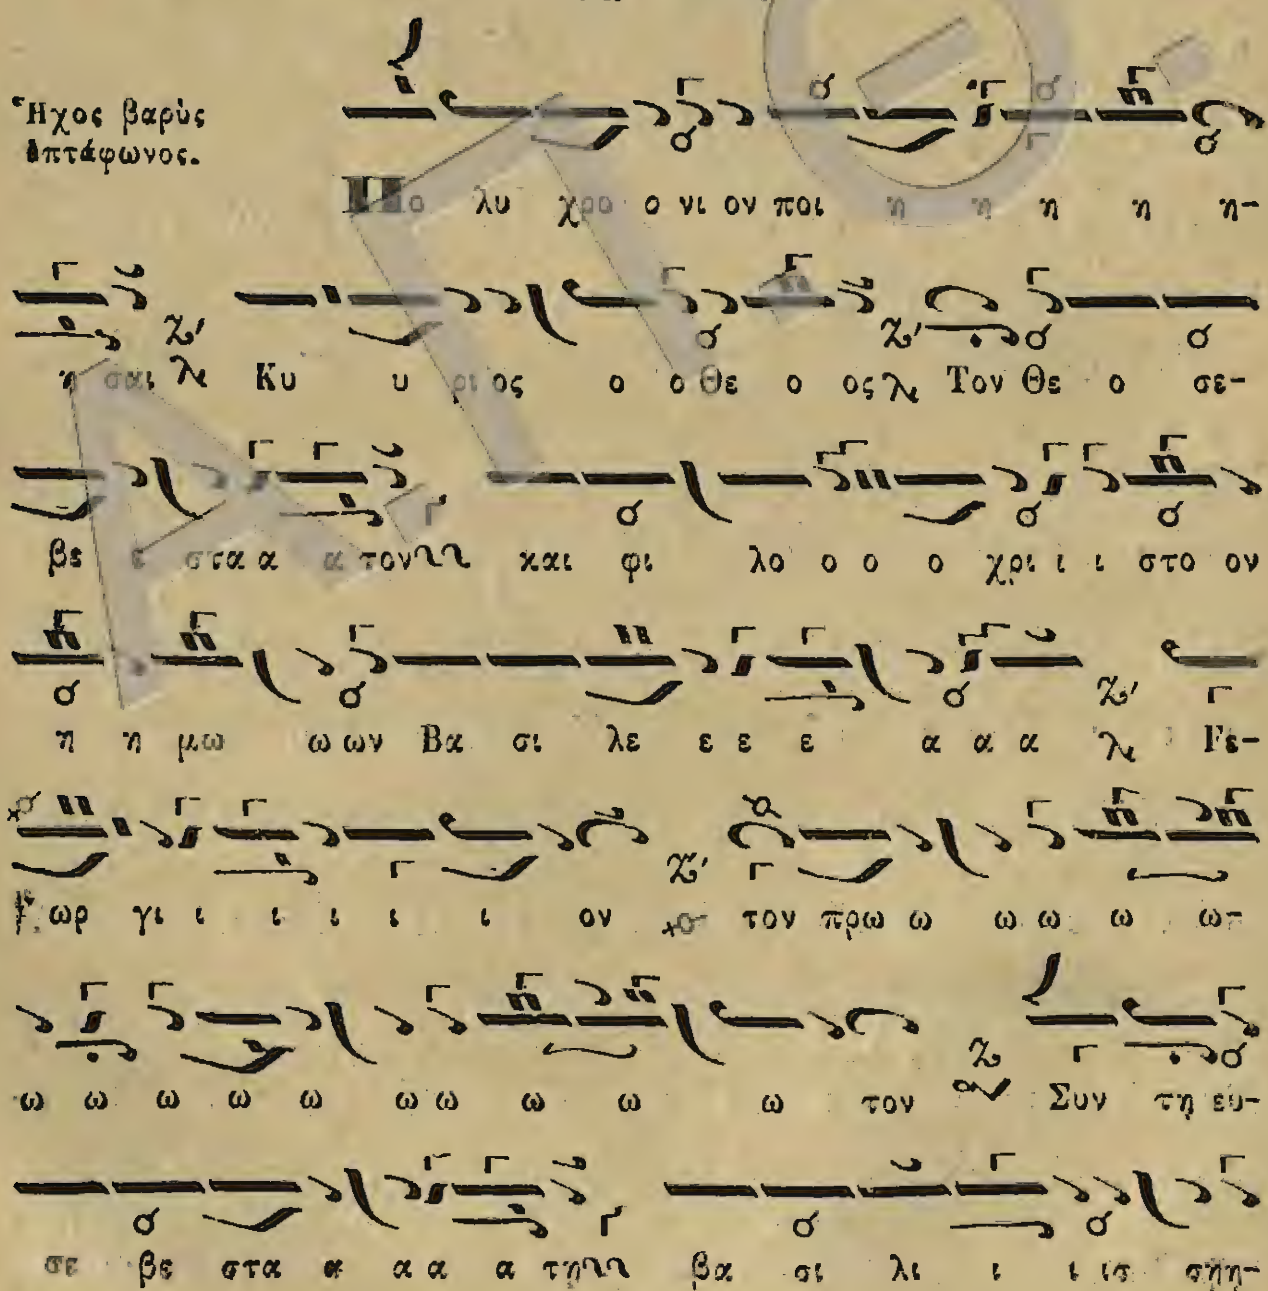 Ἦχος βαρὺς
ἑπτάφωνος.
Πο λυ χρο ο νι ον ποι η η η η η-
η σαι Κυ υ ρι ος ο ο Θε ο ος Τον Θε ο σε-
βε ε στα α α τον και φι λο ο ο ο χρι ι ι στο ον
η η μω ω ων Βα σι λε ε ε ε α α α Γε-
ωρ γι ι ι ι ι ι ον τον πρω ω ω ω ω ω-
ω ω ω ω ω ω ω ω ω ω τον Συν τη ευ-
σε βε στα α α α α τη βα σι λι ι ι ισ ση η-